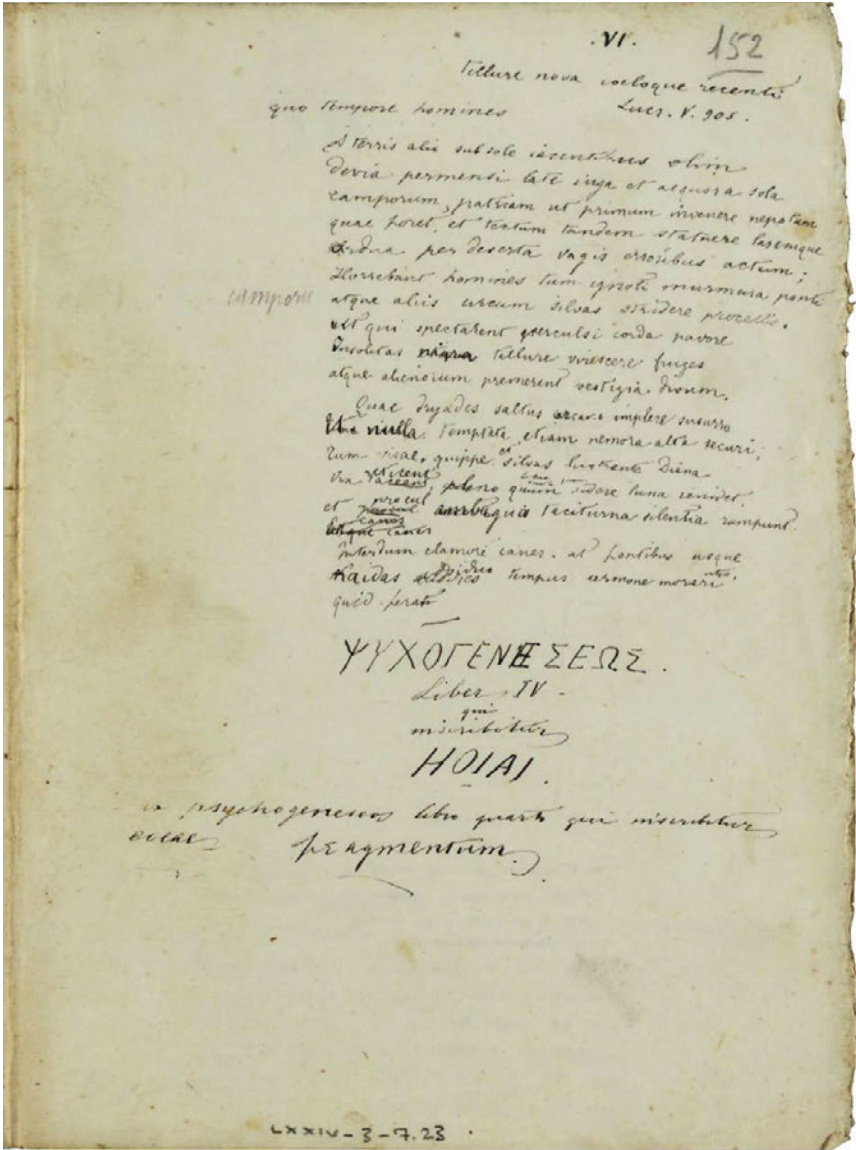 .VI. 152
tellure nova coeloque recenti
quo tempore homines Lucr. V. 905.
A terris alii sub sole iacentibus olim
devia permensi late iuga et aequora sola
camporum, patriam ut primum invenere nepotum
quae foret, et tectum tandem statuere laremque
ardua per deserta vagis erroribus actum;
Horrebant homines tum ignoti murmura ponti
camporu
atque aliis circum silvas stridere procellis.
ut qui spectarent perculsi corda pavore
Insolitas nigra tellure virescere fruges
atque alienorum premerent vestigia divum.
Quae dryades saltus arcano implere susurro
nulla temptata etiam nemora alta securi;
tum visae, quippe silvas lustrante Diana
via reticent, pleno quum sidere luna renidet
et procul ambiguis taciturna silentia rumpunt
Interdum clamore canes. at fontibus usque
Naidas tempus sermone morari
quid ferat
ΨΥΧΟΓΕΝΗΣΕΩΣ.
Liber IV.
qui
inscribitur
ΗΟΙΑΙ.
ex psychogeneseos libro quarto qui inscribitur
eoeae
fragmentum.
LXXIV-3-7.23